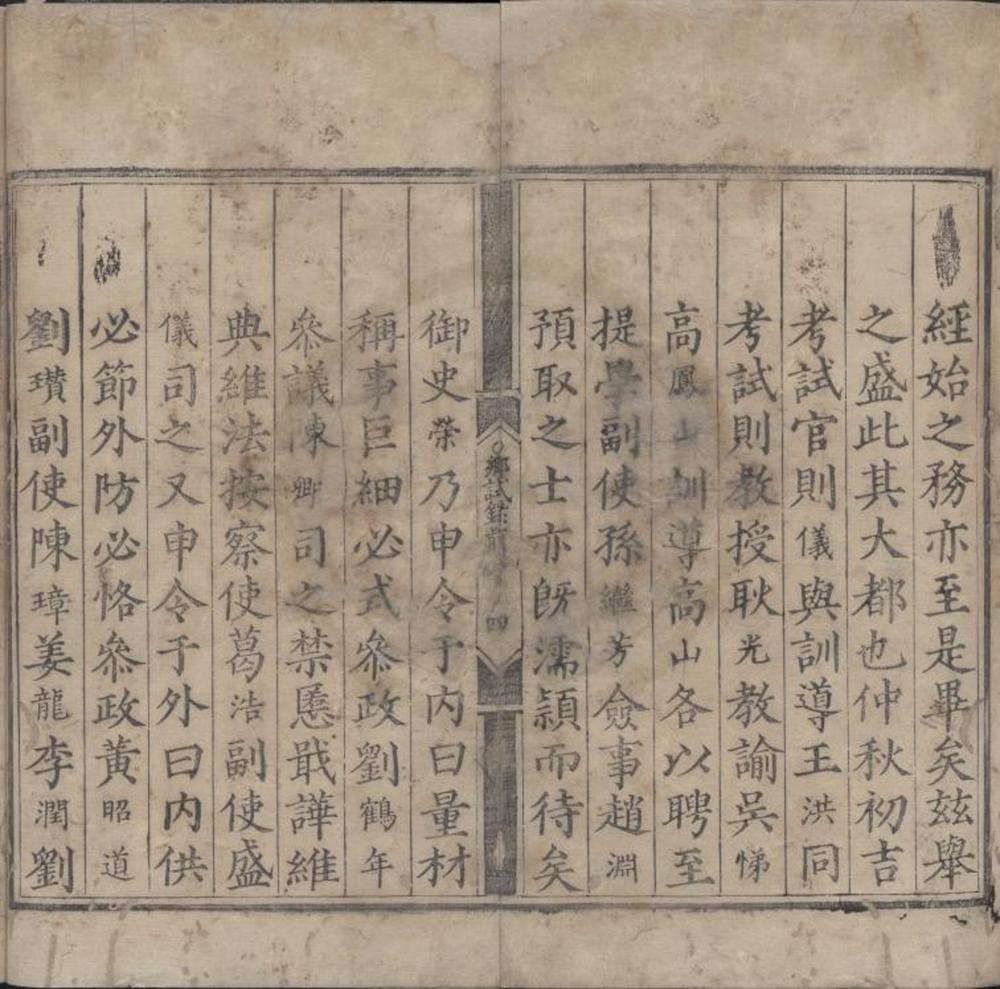 經始之務亦至是畢矣玆舉
之盛此其大都也仲秋初吉
考試官則儀與訓導王洪同
考試則教授耿光教諭吳悌
高鳳山訓導高山各以聘至
提學副使孫繼芳僉事趙淵
預取之士亦既濡潁而待矣
鄉試錄前 四
御史榮乃申令于內曰量材
稱事巨細必式叅政劉鶴年
叅議陳卿司之禁慝戢譁維
典維法按察使葛浩副使盛
儀司之又申令于外曰內供
必節外防必恪叅政黃昭道
劉瓚副使陳璋姜龍李潤劉